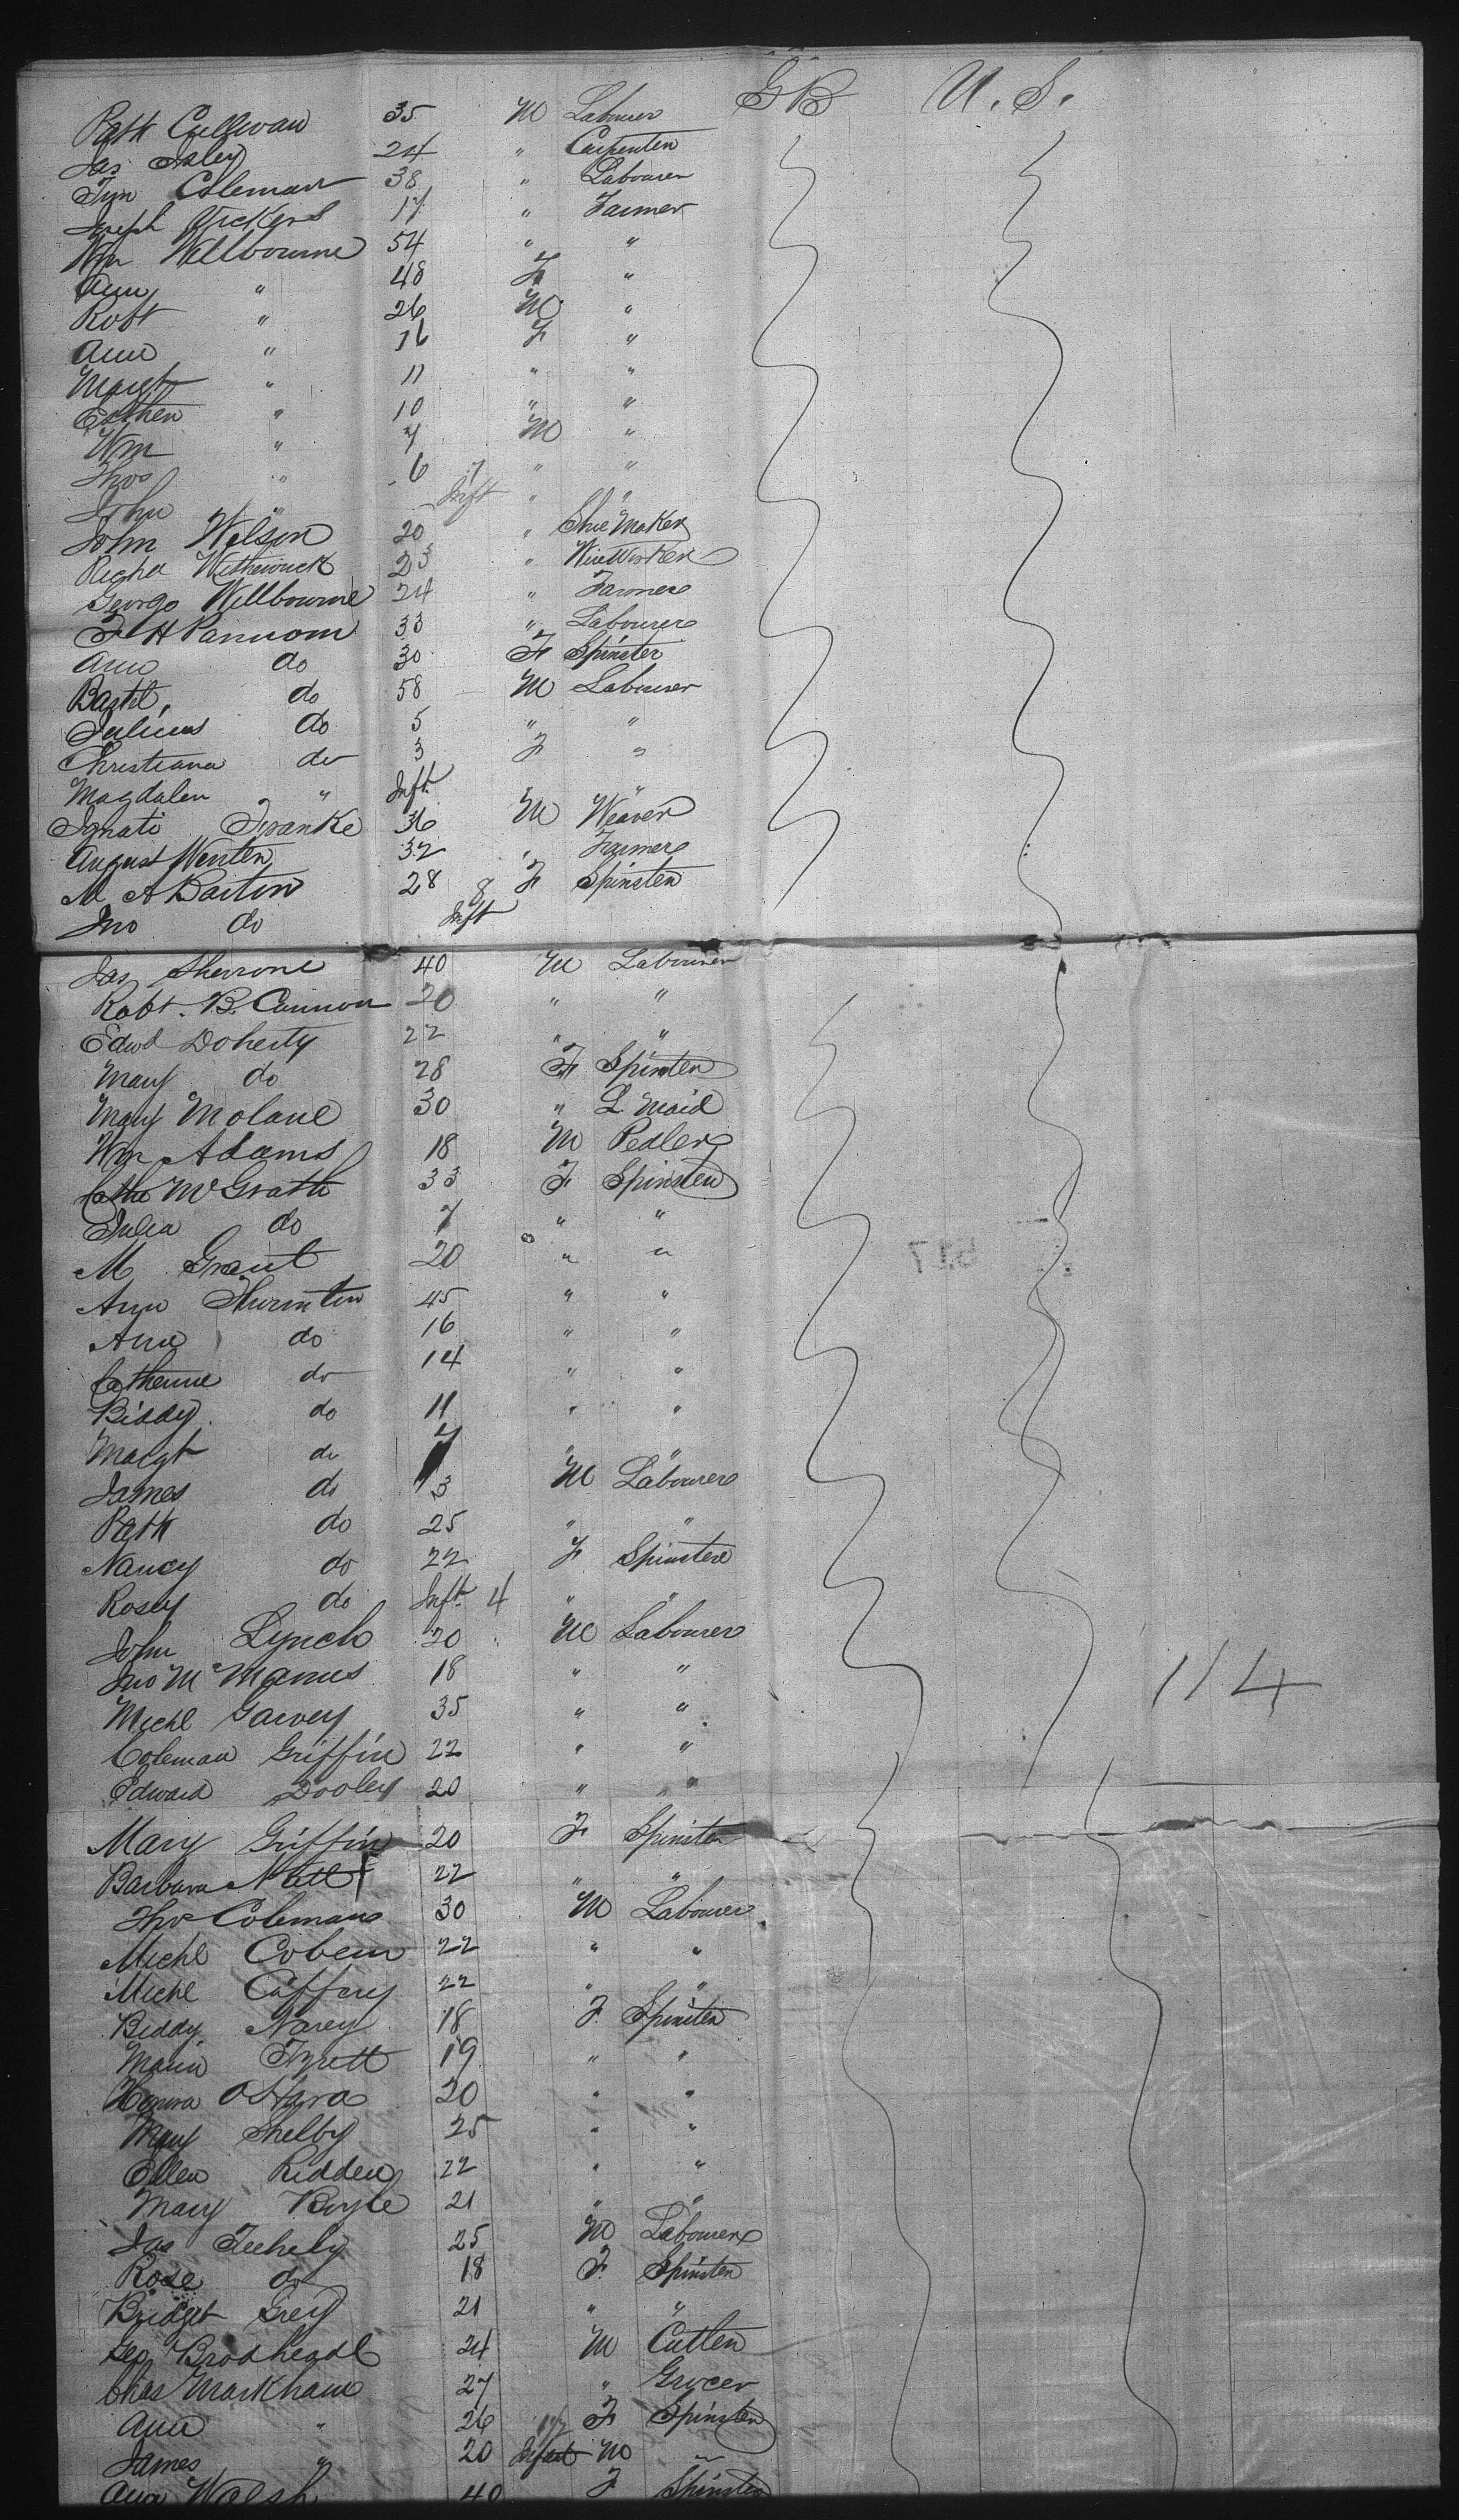 GB U.S.
Patk Cullivan 35 M Labourer
Jas Isley 24 " Carpenter
Tim Coleman 38 " Labourer
Joseph Vickers 17 " Farmer
Wm Wellbourne 54 " "
Ann " 48 F "
Robt " 26 M "
Ann " 16 F "
Margt " 11 " "
Esther " 10 " "
Wm " 7 M "
Thos " 6 " "
John " Inft " "
John Wilson 20 " Shoe Maker
Richd Witherwick 23 " Wire Worker
George Wellbourne 24 " Farmer
F H Pannom 33 " Labourer
Ann do 30 F Spinster
Bartl, do 58 M Labourer
Julius do 5 " "
Christiana do 3 F "
Magdalen " Inft "
Ignati Franke 36 M Weaver
August Wenten 32 " Farmer
M A Barton 28 F Spinster
Jno do Inft
Jas Sherrone 40 M Labourer
Robt. B. Cannon 20 " "
Edwd Doherty 22 " "
Mary do 28 F Spinster
Mary Molane 30 " L. Maid
Wm Adams 18 M Pedler
Cathe McGrath 33 F Spinster
Julia do 7 " "
M Grant 20 " "
Ann Thurnton 45 " "
Ann do 16 " "
Catherine do 14 " "
Biddy do 11 " "
Margt do 7 " "
James do 3 M Labourer
Patk do 25 " "
Nancy do 22 F Spinster
Rosey do Inft 4 " "
John Lynch 20 M Labourer
Jno McManus 18 " "
114
Michl Garvey 35 " "
Coleman Griffin 22 " "
Edward Dooley 20 " "
Mary Griffin 20 F Spinster
Barbara 22 " "
Thos Colemans 30 M Labourer
Michl Coben 22 " "
Michl Caffrey 22 " "
Biddy Narey 18 F Spinster
Maria Tyrett 19 " "
Honora O Hara 20 " "
Mary Shelby 25 " "
Ellen Ridden 22 " "
Mary Boyle 21 " "
Jas Feehely 25 M Labourer
Rose do 18 F Spinster
Bridget Grey 21 " "
Geo Brodhead 24 M Cutler
Chas Markham 27 " Grocer
Ann " 26 F Spinster
James " 20 Infant M "
Ann Walsh 40 F Spinster